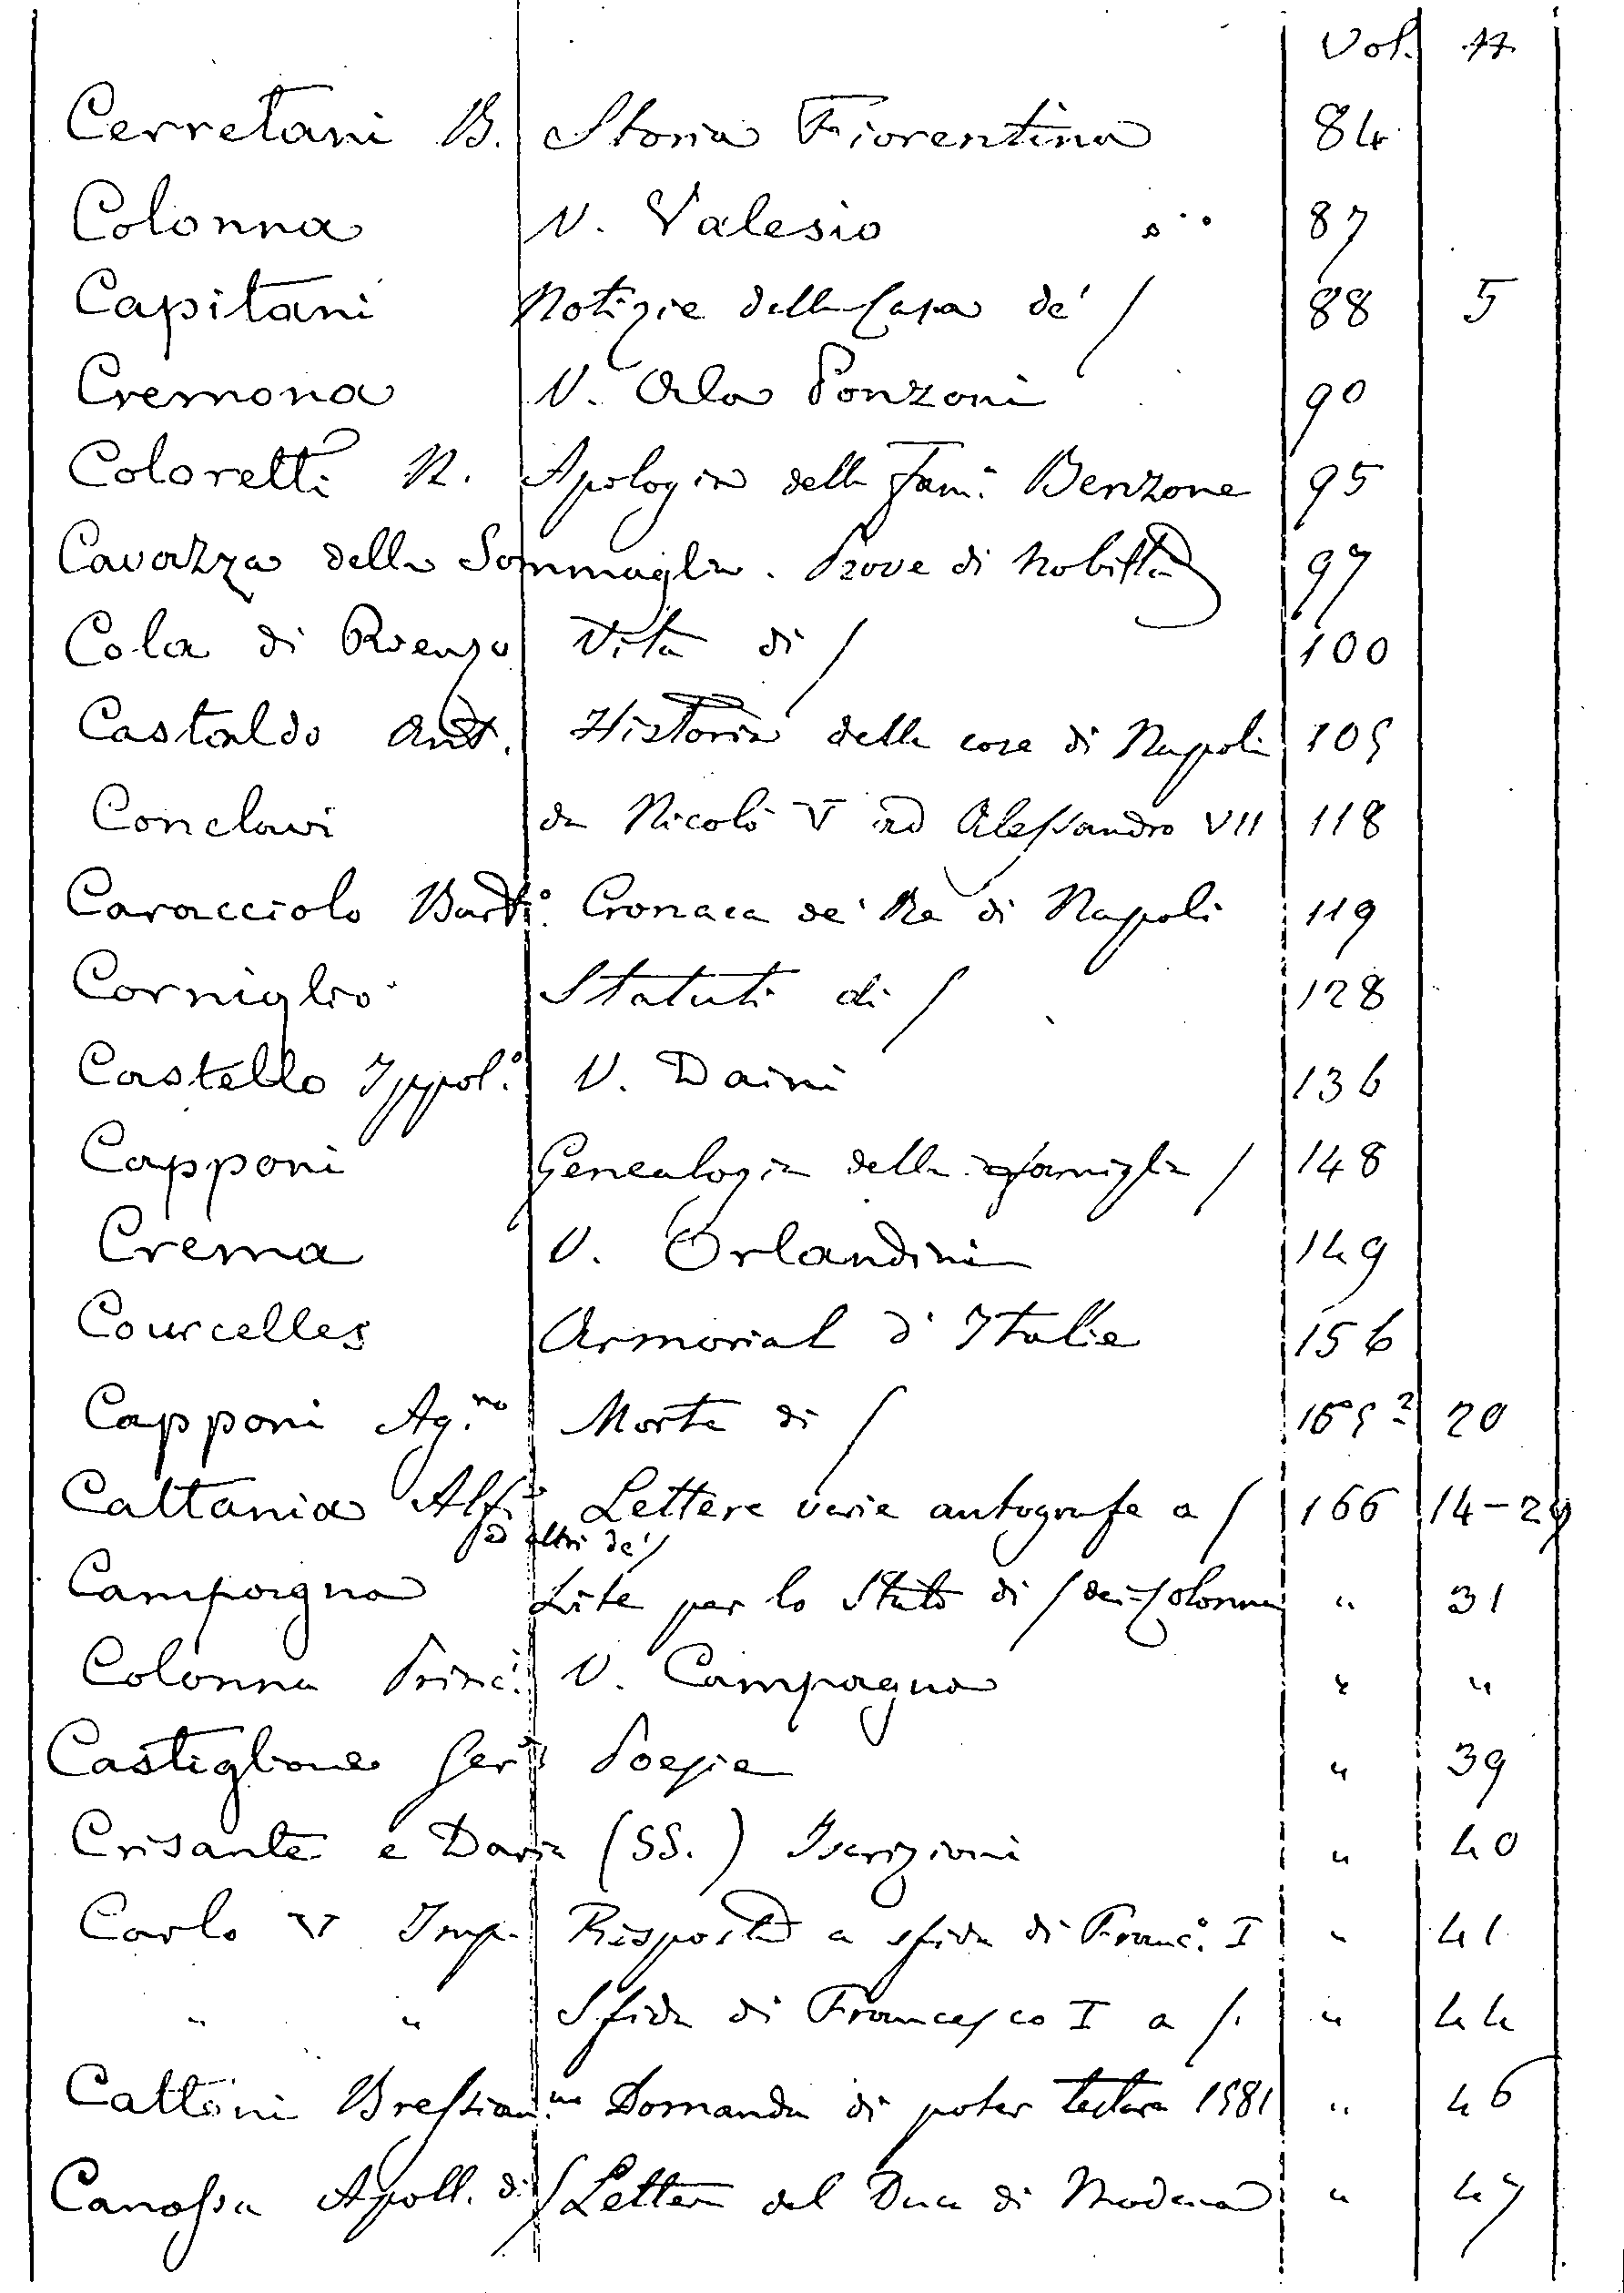 Vol. №
Cerretani B. Storia Fiorentina 84
Colonna V. Valesio 87
Capitani Notizie della Casa de' / 88 5
Cremona V. Ala Ponzoni 90
Coloretti N. Apologia della Fam.a Benzone 95
Cavazza della Sommaglia. Prove di Nobiltà 97
Cola di Rienzo Vita di / 100
Castaldo Ant. Historia delle cose di Napoli 105
Conclavi da Nicolò V ad Alessandro VII 118
Caracciolo Bart.o Cronaca de' Re di Napoli 119
Corniglio Statuti di / 128
Castello Ippol.o V. Daini 136
Capponi Genealogia della famiglia / 148
Crema V. Orlandini 149
Courcelles Armorial d'Italie 156
Capponi Ag.no Morte di / 20
Cattania Alf.o Lettere varie autografe a / 166 14-29
ed altri de' /
Campagna Lite per lo Stato di / dei Colonna " 31
Colonna Princ. V. Campagna " "
Castiglione Poesie " 39
Crisante e Daria (SS.) Iscrizioni " 40
Carlo V Imp. Risposta a sfida di Franc.o I " 41
" " Sfida di Francesco I a /. " 44
Cattani Domanda di poter testare 1581 " 46
Canossa Apoll. di / Lettera del Duca di Modena " 47